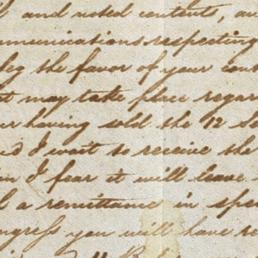 and noted contents, an
mmunications respecting
beg the favor of your con
t may take place regar
er having sold the 12 S
nd I wait to receive the
n I fear it will leave
a remittance in spe
ngress you will have re